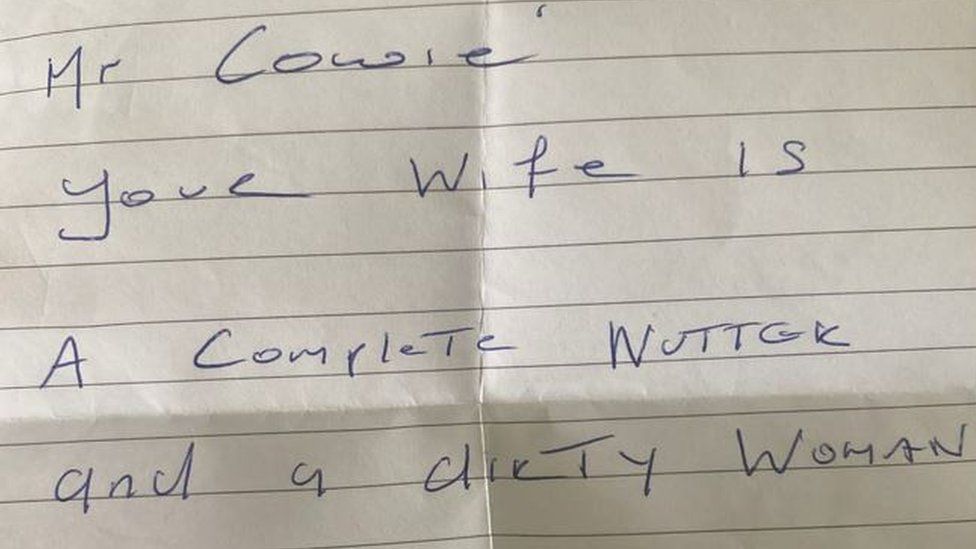 Mr Cowie
Your Wife is
A Complete NUTTER
and a dirty WOMAN